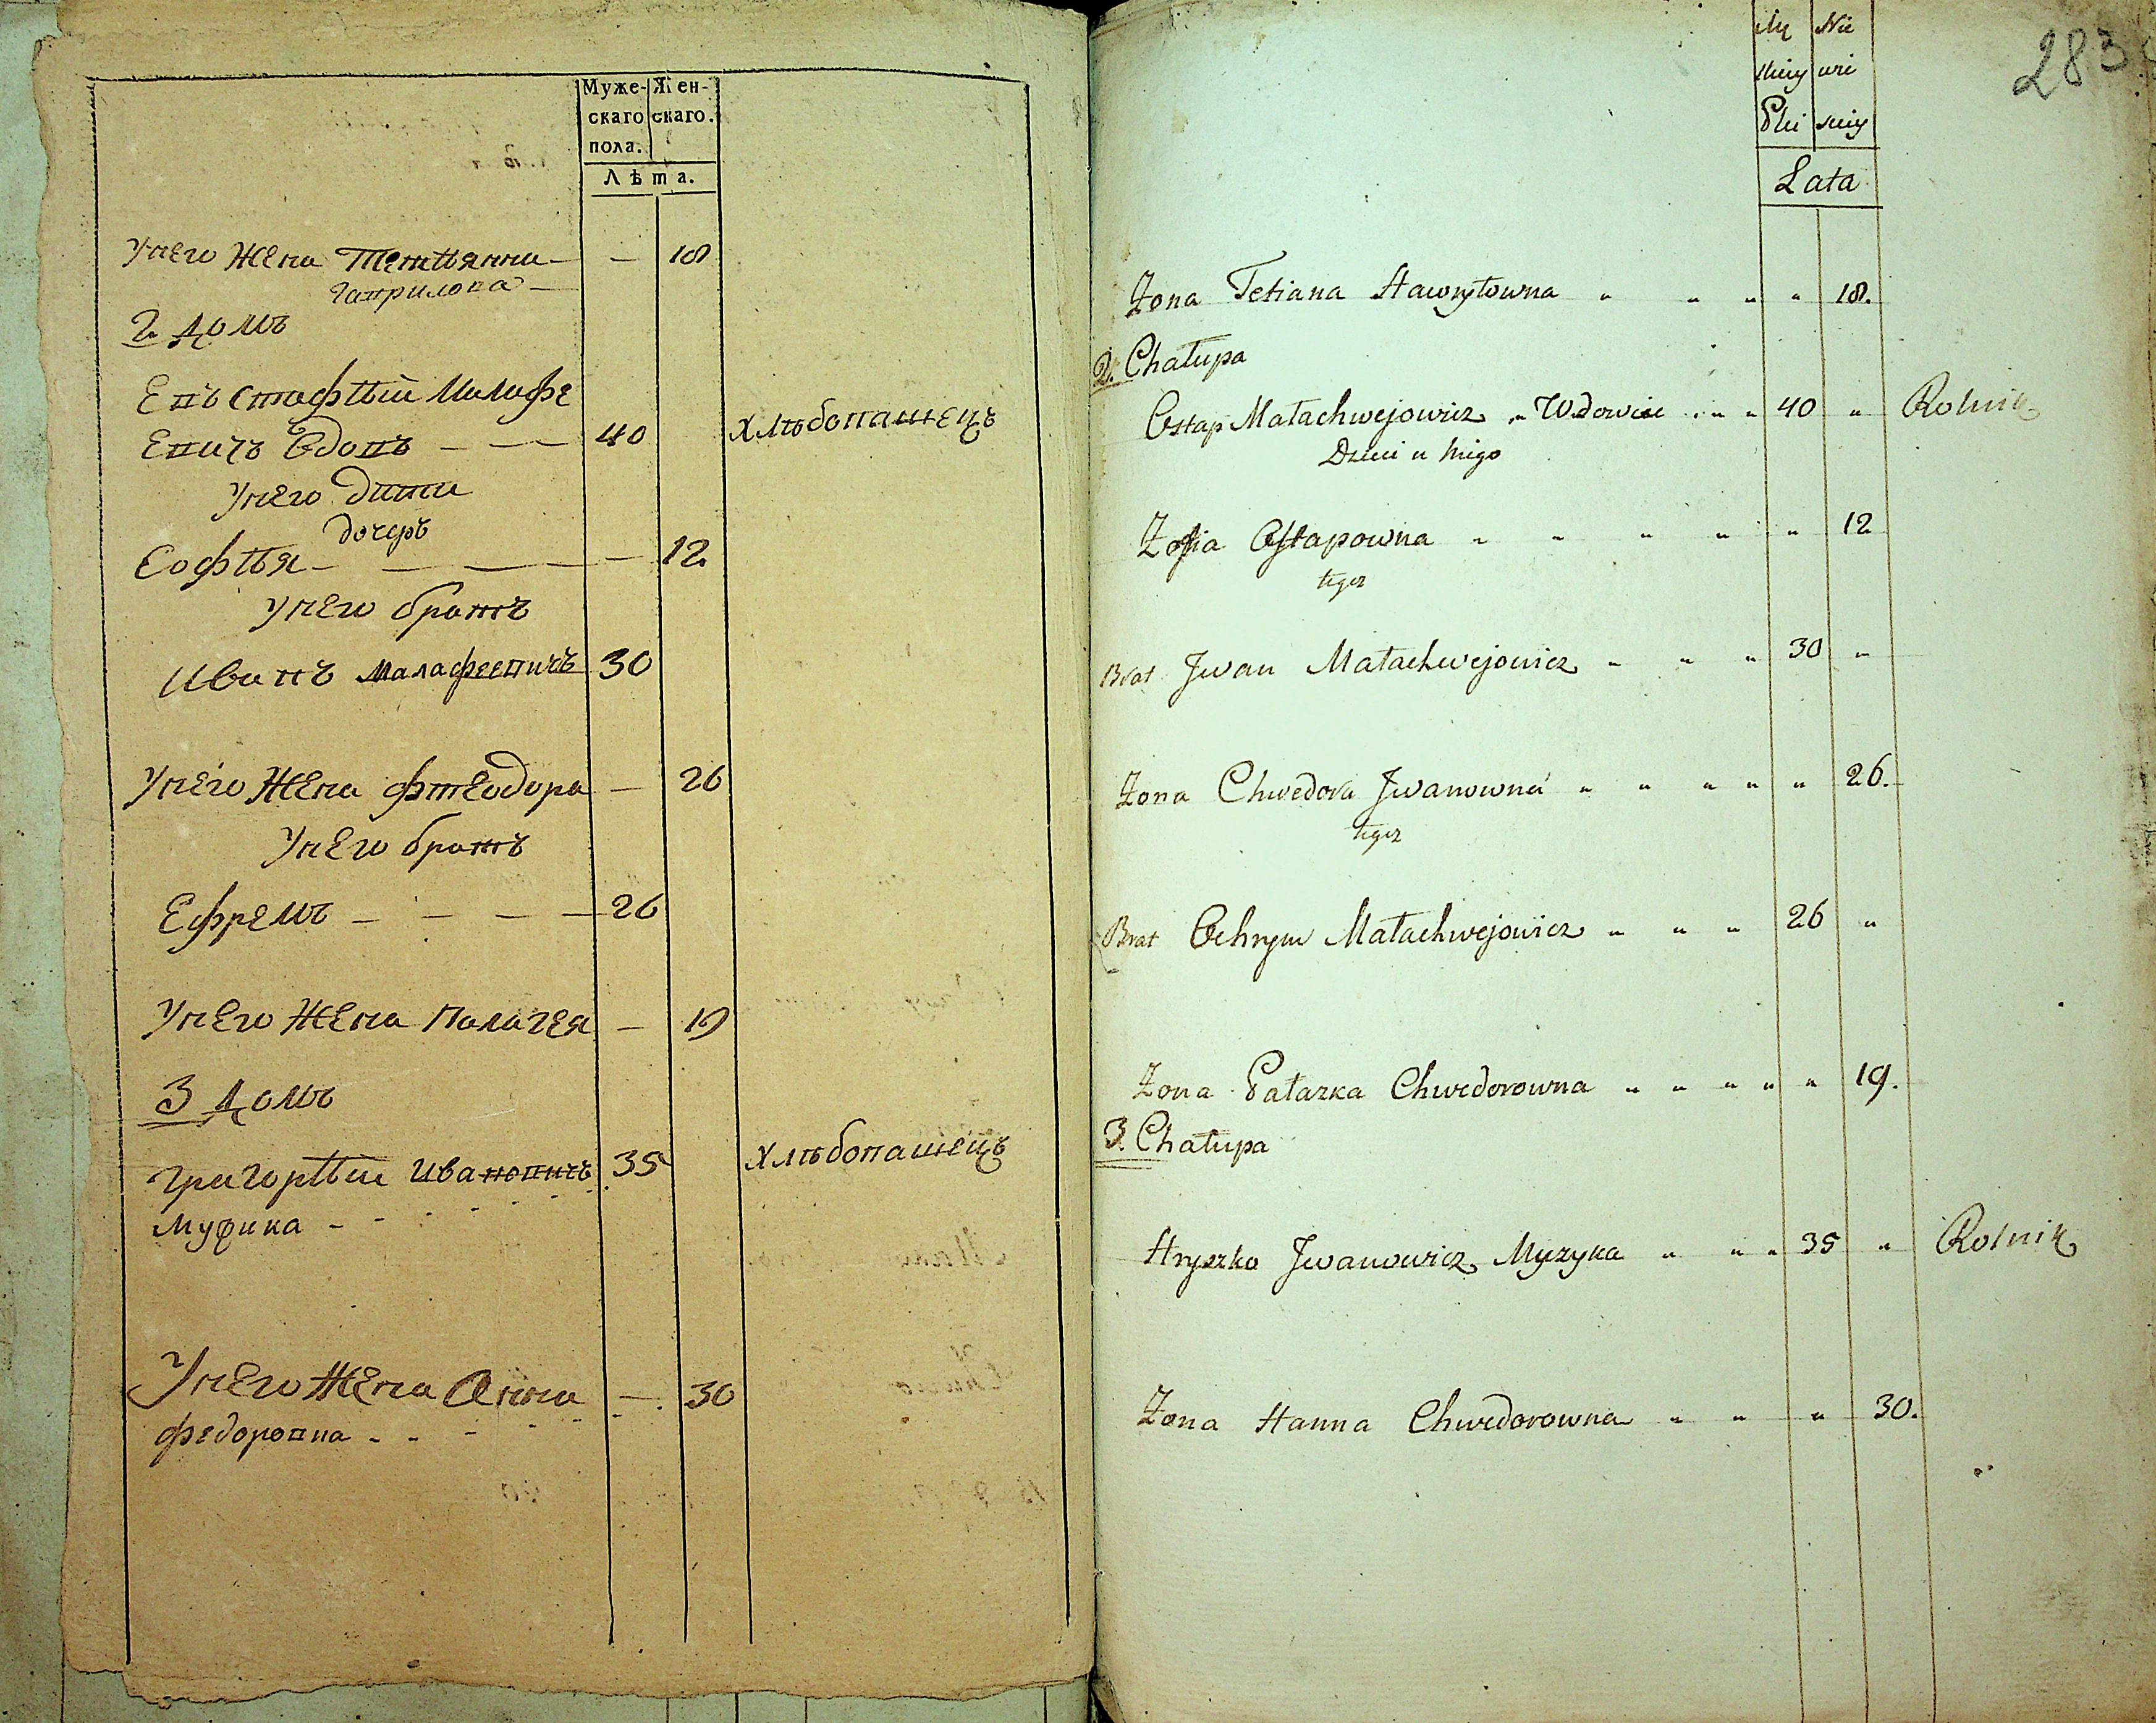 Муже- Жен-
скаго скаго.
пола.
Лѣта.
Унего жена Тетіянна — — 18
Гаврилова —
2 домъ
Евъстафій Малафе
Евичъ Вдовъ — — 40 хлѣбопашецъ
Унего дити
дочеръ
Софія — — — — — 12
Унего братъ
Иванъ Малафеевичъ 30
Унего жена Фтеодора — 26
Унего братъ
Ефремъ — — — — 26
Унего жена Палагея — 19
3 домъ
Григорій Ивановичъ 35 хлѣбопашецъ
Музика - - - - -
Унего жена Анна — 30
Федоровна - - - -
283
Mę Nie
skiey wie
Płci sciey
Lata
Żona Tetiana Hawryłowna " " " " 18.
2. Chałupa
Ostap Małachwejowicz " Wdowiec " " " 40 " Rolnik
Dzieci u niego
Zofia Ostapowna " " " " " 12
tegoż
Brat Jwan Małachwejowicz " " " 30 "
Żona Chwedora Jwanowna " " " " " 26.
tegoż
Brat Ochrym Małachwejowicz " " " 26 "
Żona Pałazka Chwedorowna " " " " " 19.
3. Chałupa
Hryszko Jwanowicz Myzyka " " " 35 " Rolnik
Żona Hanna Chwedorowna " " " 30.